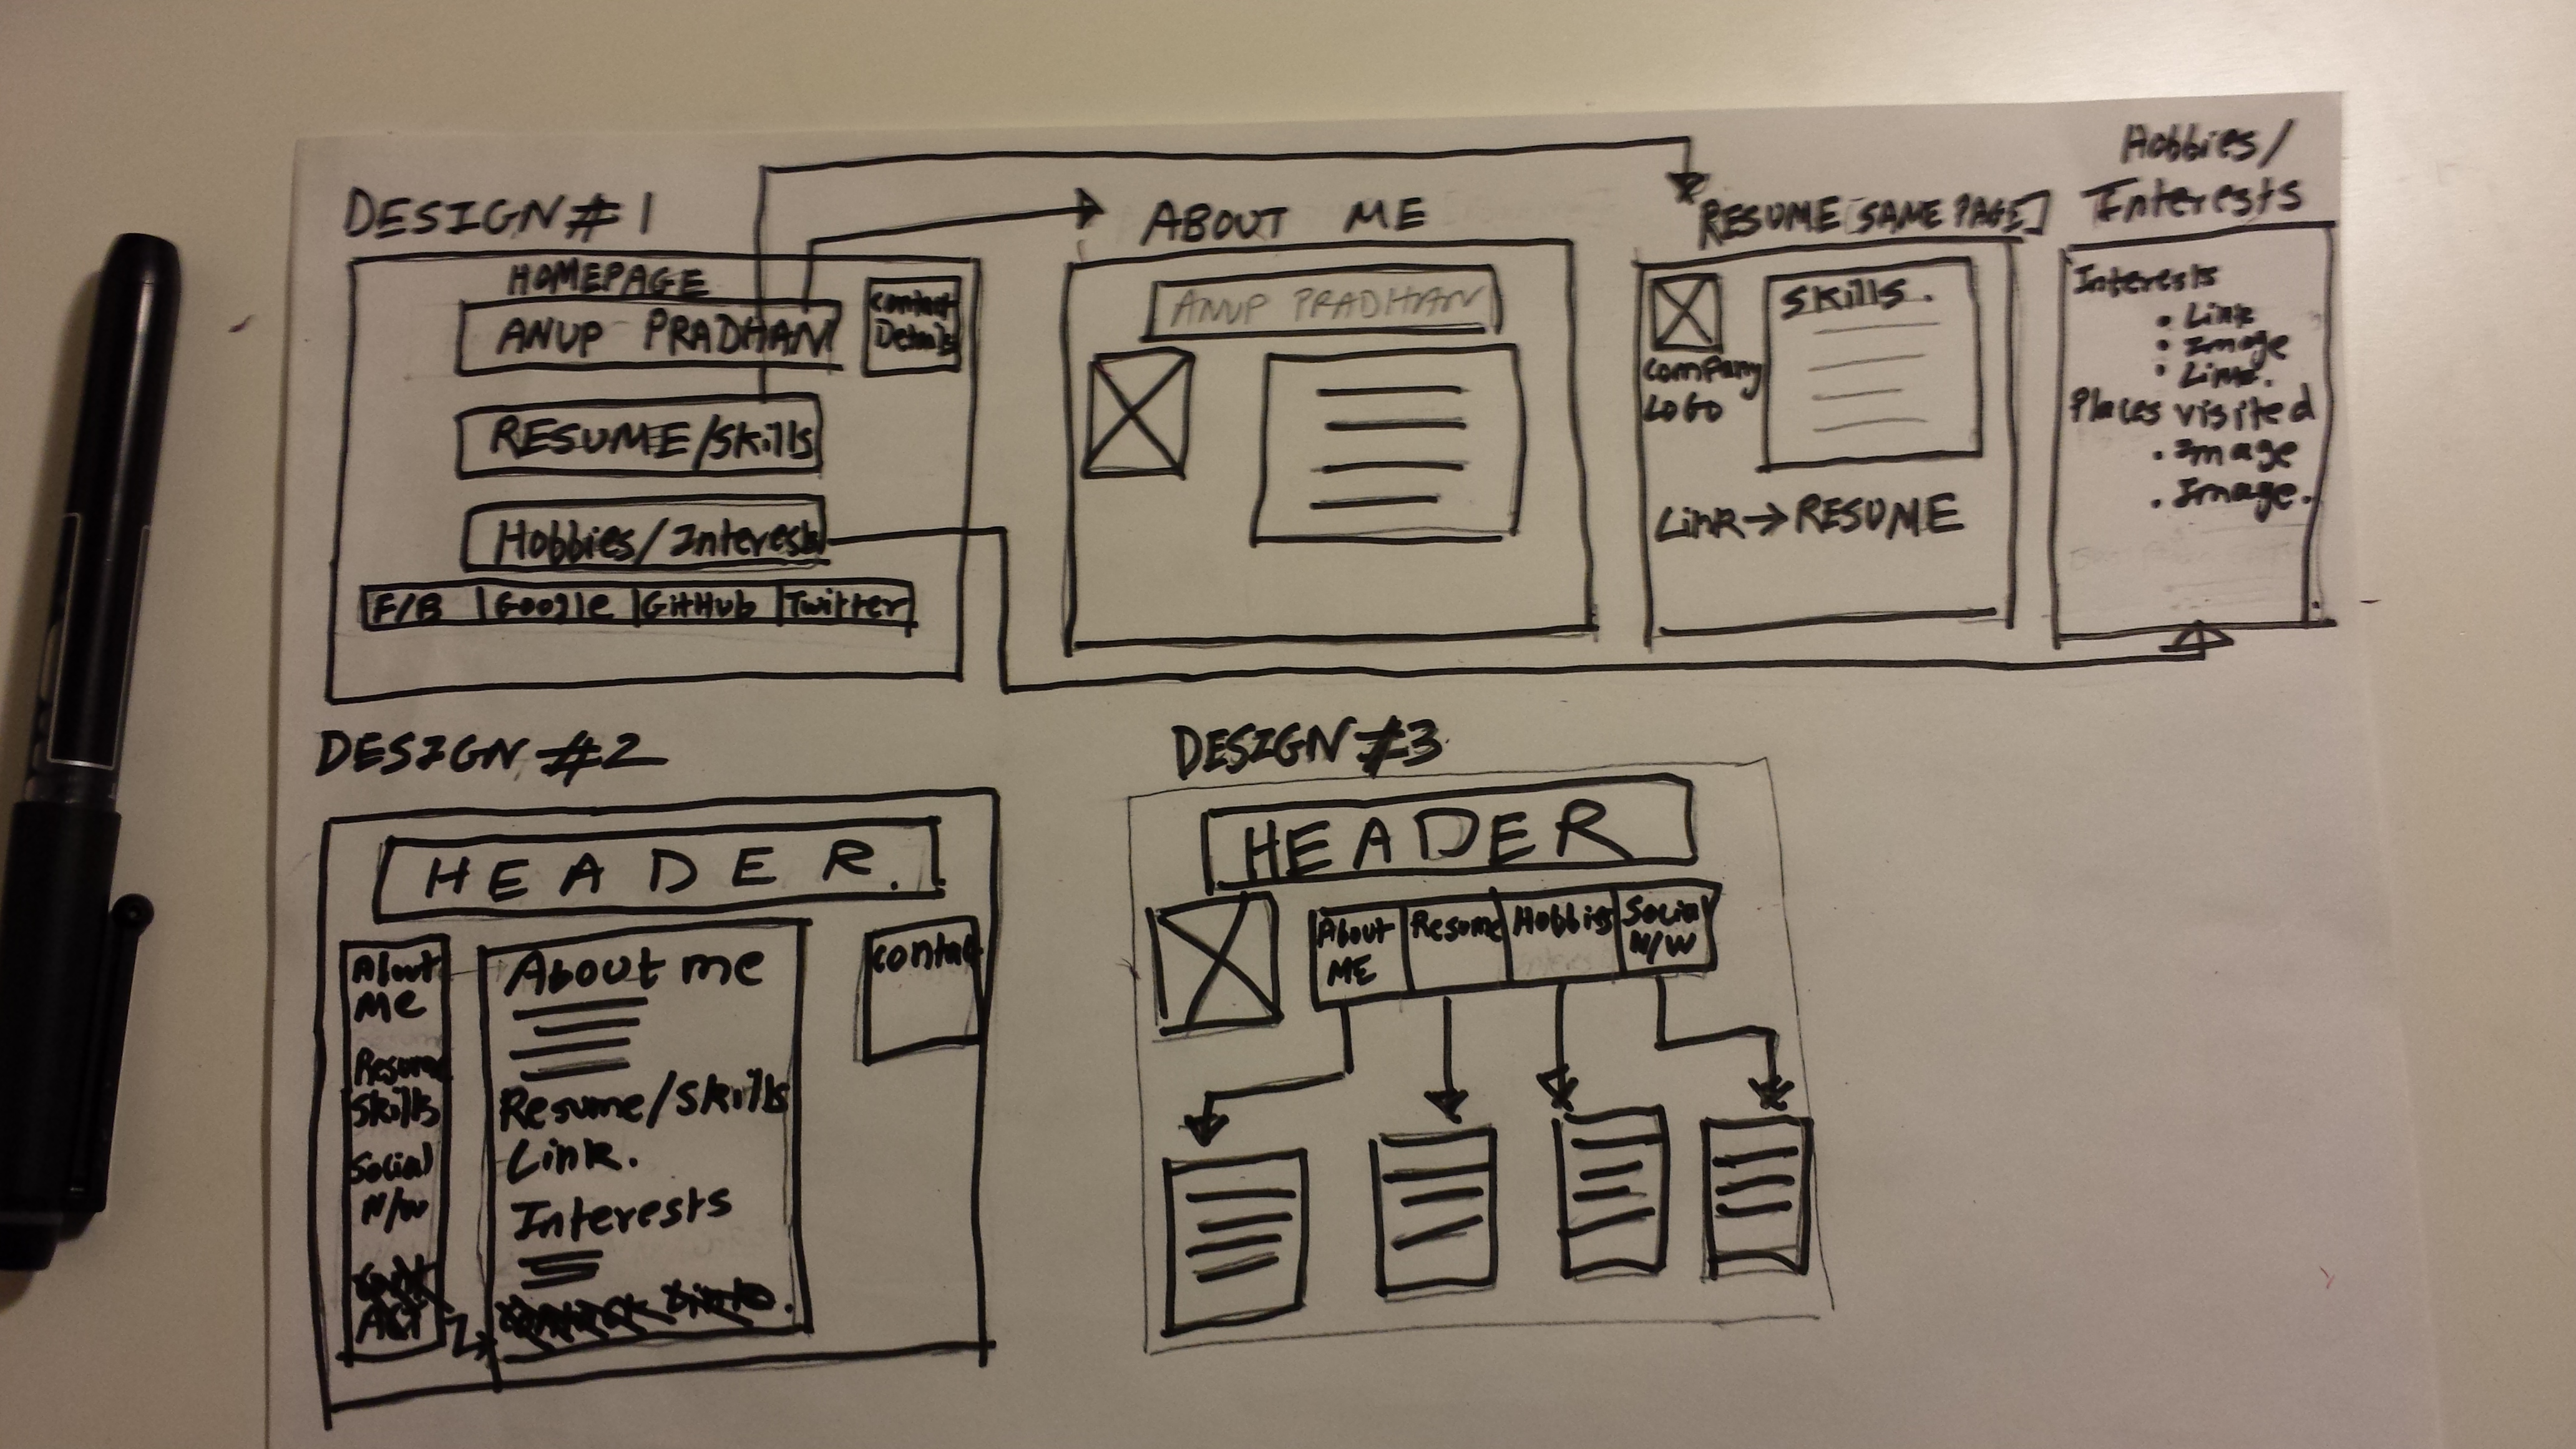 DESIGN #1
HOMEPAGE
ANUP PRADHAN
Contact
Details
RESUME/Skills
Hobbies/Interests
F/B
Google
GitHub
Twitter
ABOUT ME
ANUP PRADHAN
RESUME [SAME PAGE]
Skills.
Company
LOGO
Link → RESUME
Hobbies/
Interests
Interests
• Link
• Image
Places visited
• Image
• Image.
DESIGN #2
HEADER.
About
Me
Resume
Skills
Social
N/W
About me
Resume/Skills
Link.
Interests
DESIGN #3
HEADER
About
ME
Resume
Hobbies
Social
N/W